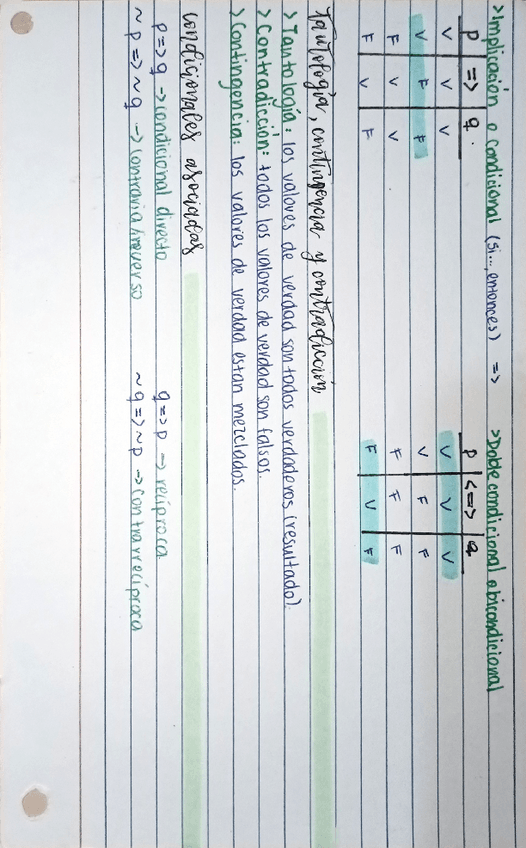 >Implicación o condicional (si..., entonces) => >Doble condicional o bicondicional
p => q. p <=> q
V V V V V V
V F F V F F
F V V F F F
F V F F V F
Tautología, contingencia y contradicción
>Tautología: los valores de verdad son todos verdaderos (resultado).
>Contradicción: todos los valores de verdad son falsos.
>Contingencia: los valores de verdad estan mezclados.
condicionales asociadas
p=>q ->condicional directo q=>p -> recíproca
~p=>~q -> contraria/inverso ~q=>~p -> contrarrecíproca